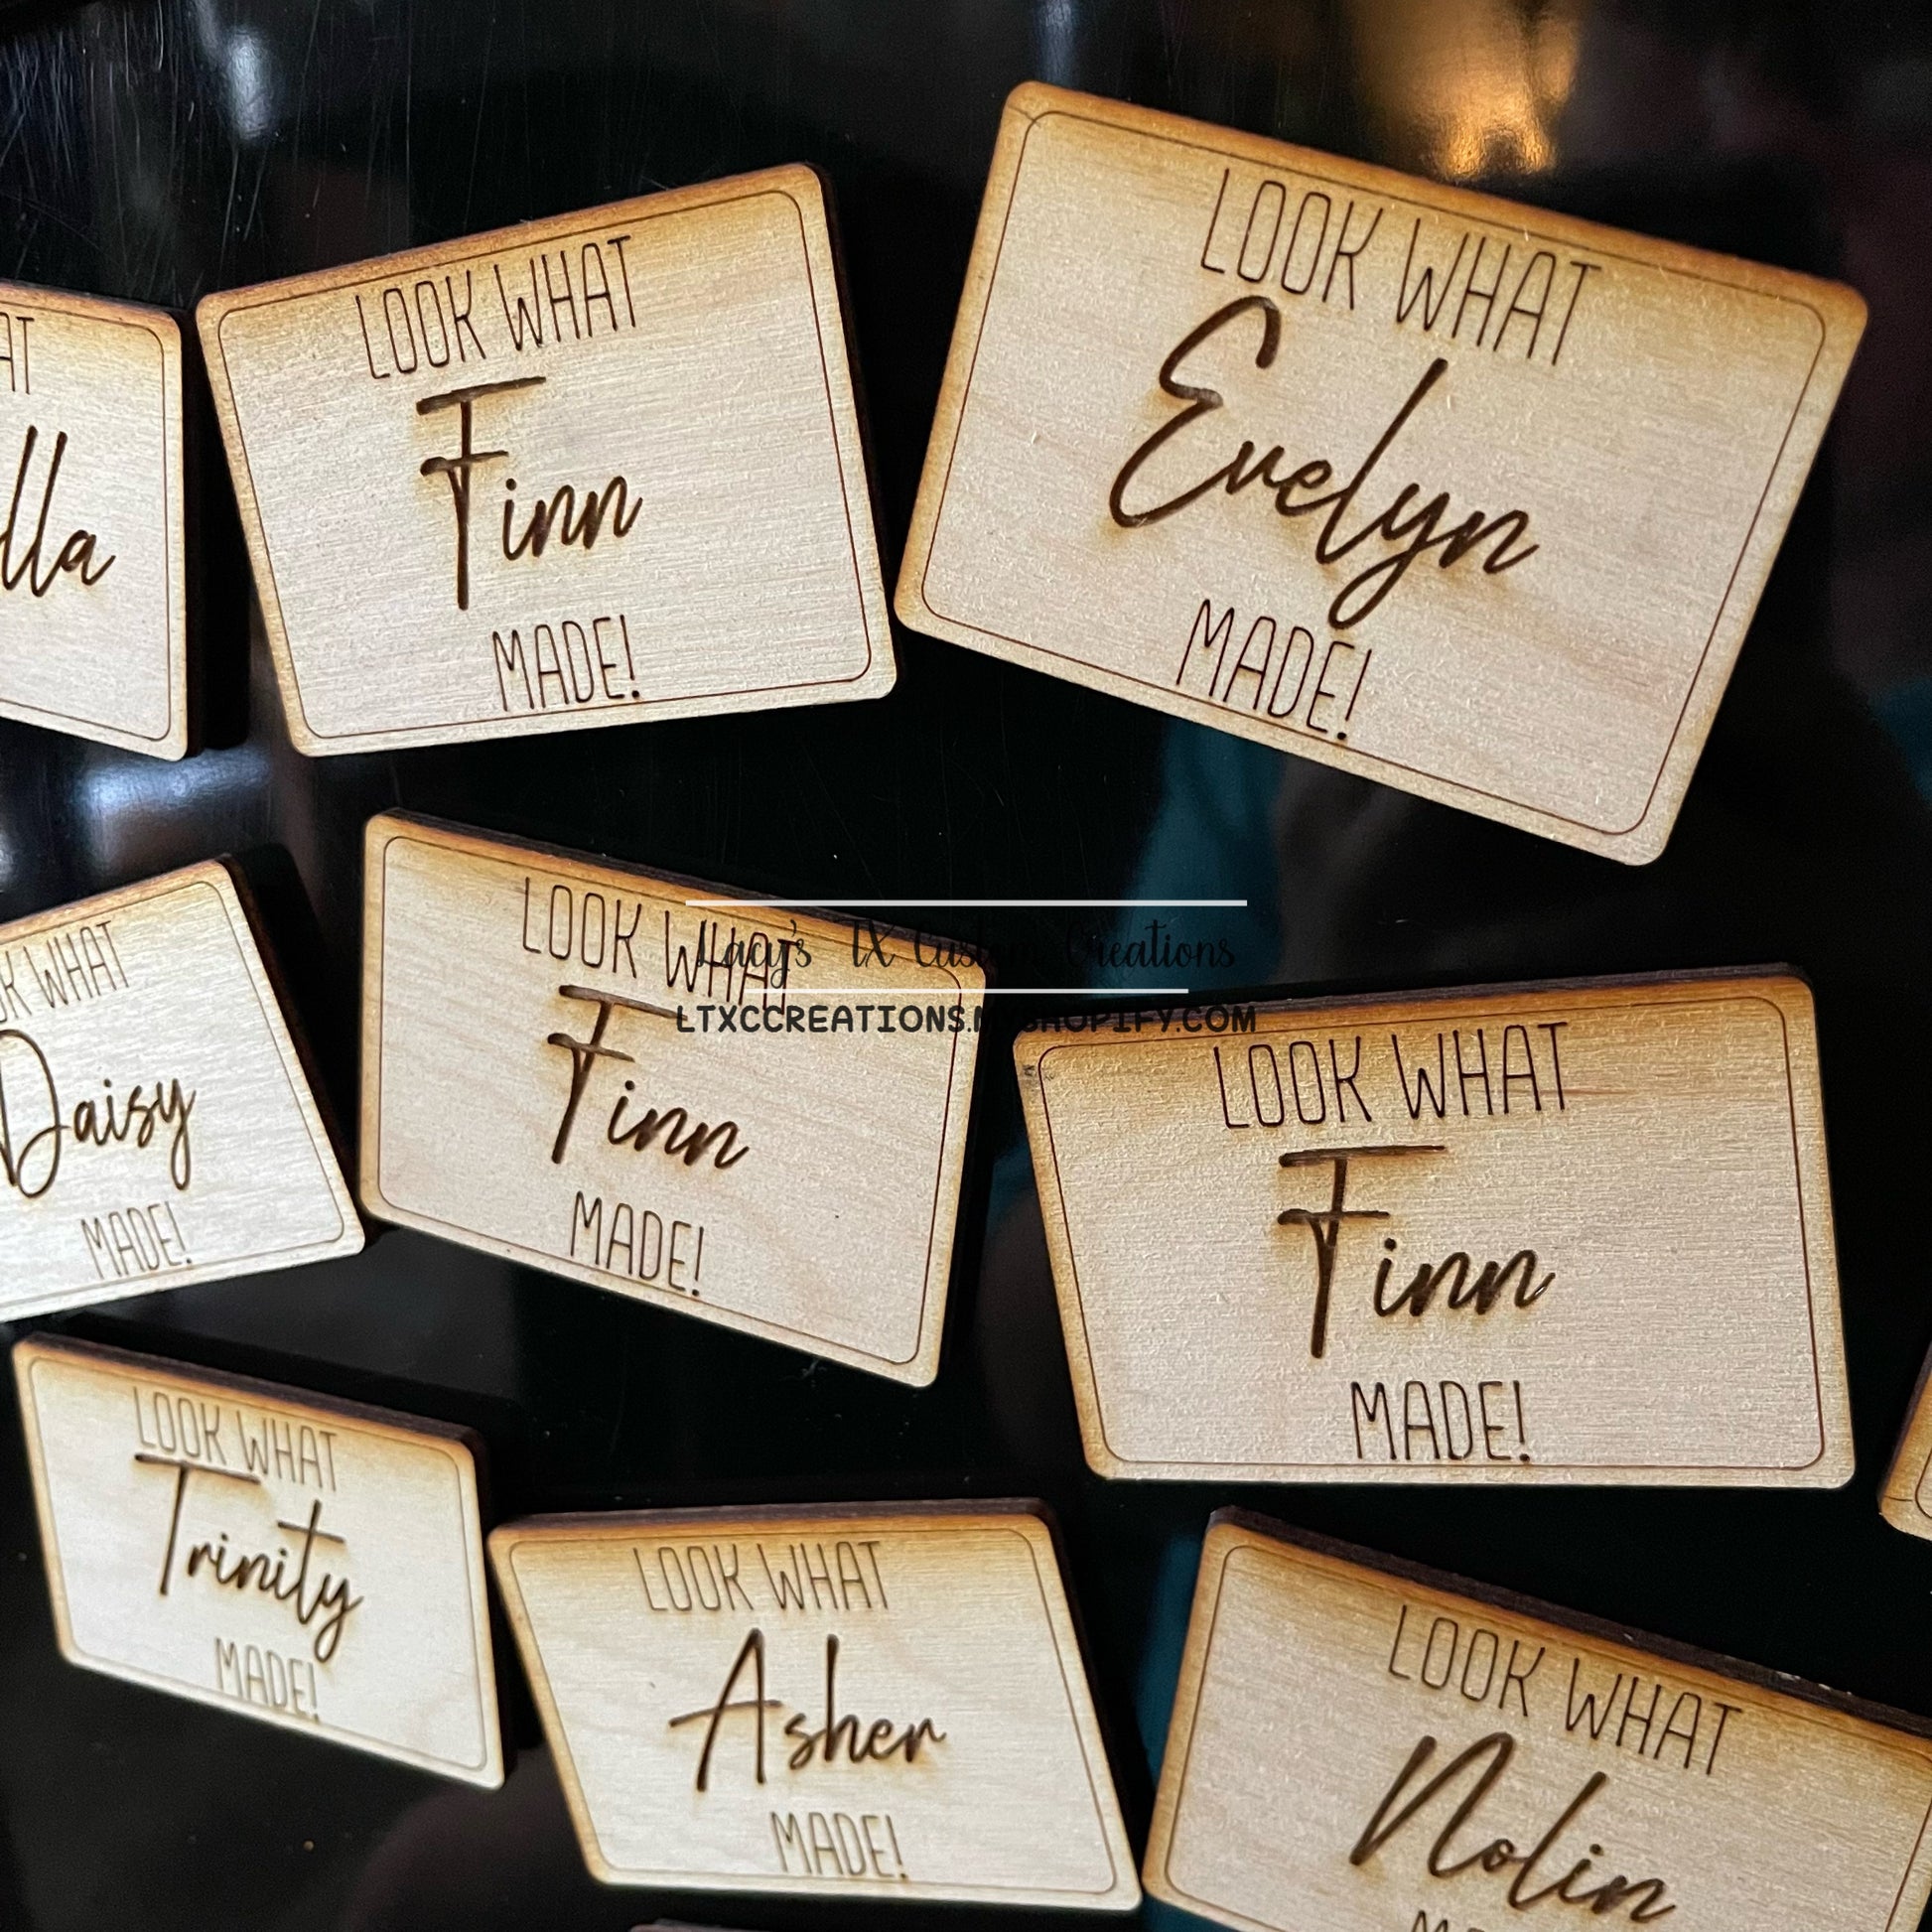 LOOK WHAT
Evelyn
MADE!
LOOK WHAT
Finn
MADE!
AT
lla
LOOK WHAT
Finn
MADE!
Lacy's TX Custom Creations
LTXCCREATIONS.MYSHOPIFY.COM
OK WHAT
Daisy
MADE!
LOOK WHAT
Finn
MADE!
LOOK WHAT
Trinity
MADE!
LOOK WHAT
Asher
MADE!
LOOK WHAT
Nolin